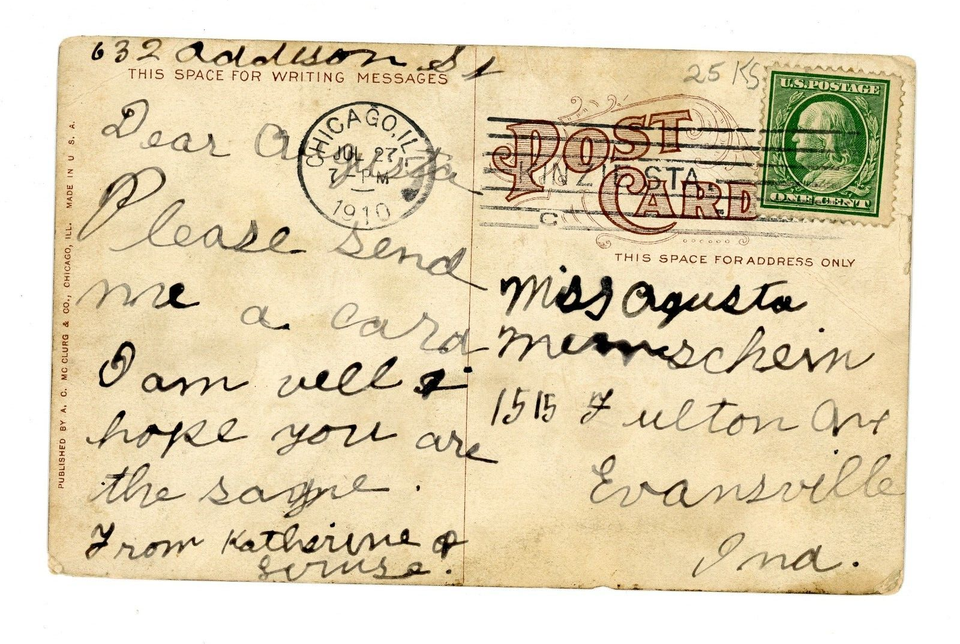 632 Addison St
THIS SPACE FOR WRITING MESSAGES
Dear Augusta
Please send
me a card
I am well &
hope you are
the same.
From Katherine &
PUBLISHED BY A. C. McCLURG & CO., CHICAGO, ILL. MADE IN U. S. A.
CHICAGO, ILL
JUL 27
7 PM
1910
KINZIE STA
C
25 KS
U.S. POSTAGE
ONE CENT
POST
CARD
THIS SPACE FOR ADDRESS ONLY
Miss Agusta
1515 Fulton Ave
Evansville
Ind.